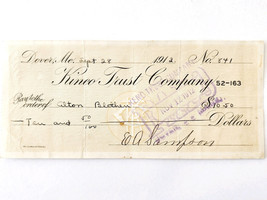 Dover, Me. Sept 28 1912 No. 841
Kineo Trust Company 52-163
Pay to the order of Elton $10.50
Ten and 50/100 Dollars
E A Sampson